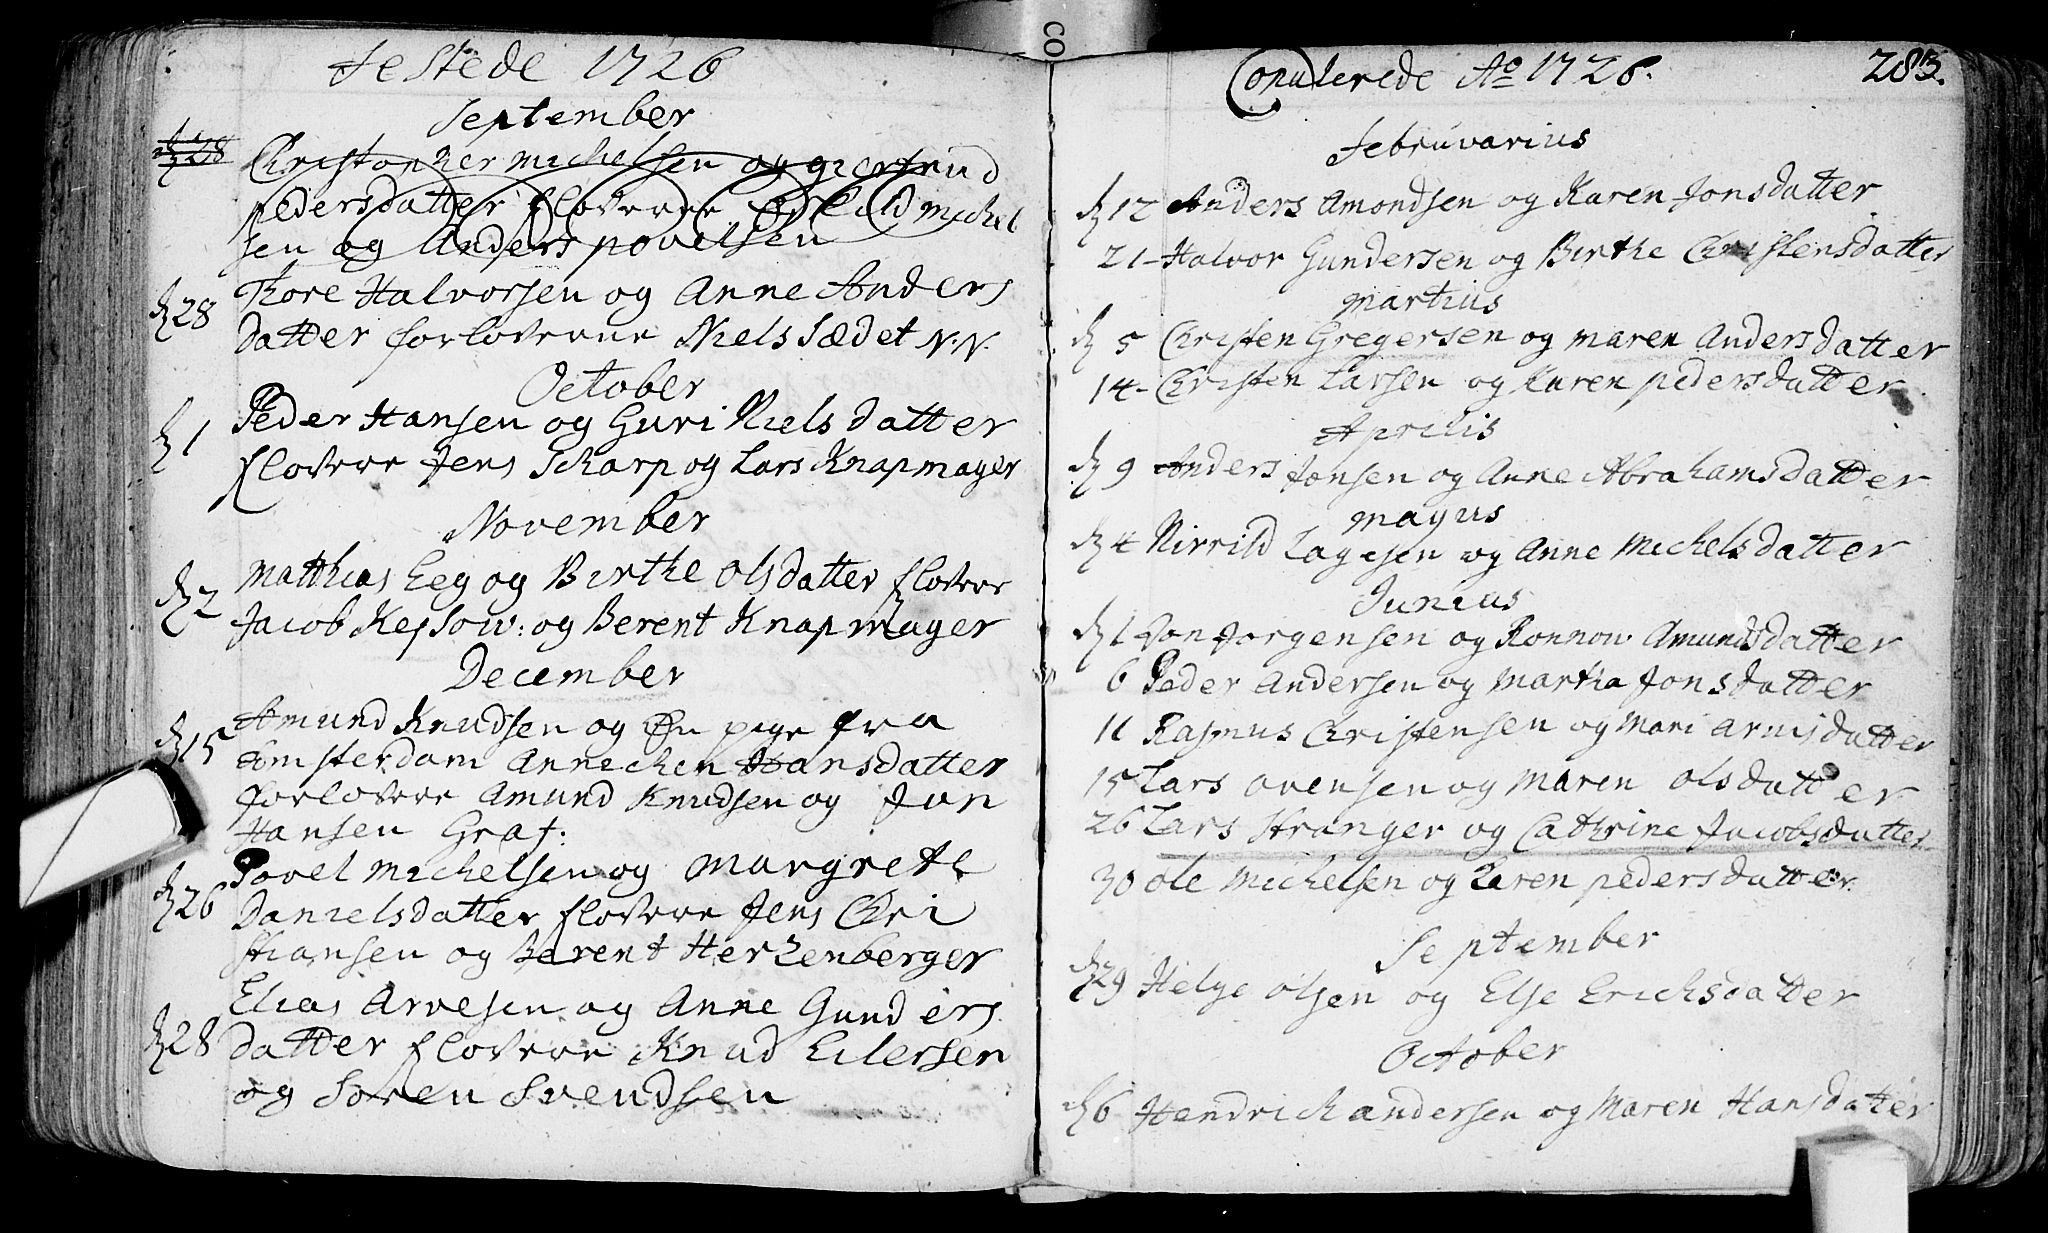 Festede 1726
September
d 28 Christopher Michelsen og giertrud
pedersdatter floverne Michel
sen og Anders povelsen
d 28 Thore Halvorsen og Anne Anders
datter forloverne Niels Sædet N.N.
October
d 1 Peder Hansen og Guri Niels datter
flovere Jens Scharp og Lars Knapmager
November
d 2 Matthias Eeg og Birthe Olsdatter flovere
Jacob Kessow: og Berent Knapmager
December
d 15 Amund Knudsen og En pige fra
Amsterdam Annichen Hansdatter
forlovere Amund Knudsen og Jan
Hansen Graf:
d 26 Povel Michelsen og Margrete
Danielsdatter flovere Jens Chri
stiansen og Berent Hertzenberger
d 28 Elias Arvesen og Anne Gunders
datter flovere Knud Eilersen
og Soren Svendsen
Copulerede Ao 1726. 283.
Februvarius
d 12 Anders Amondsen og Karen Jonsdatter
21 - Halvor Gundersen og Birthe Christensdatter
Martius
d 5 Christen Gregersen og Maren Andersdatter
14 - Christen Larsen og Karen pedersdatter
Aprilis
d 9 Anders Jonsen og Anne Abrahamsdatter
Mayus
d 4 Nirrild Lagesen og Anne Michelsdatter
Junius
d 1 Jon Jorgensen og Ronnow Amundsdatter
6 Peder Andersen og Martha Jonsdatter
11 Rasmus Christensen og Mari Arnisdatter
15 Lars Ovensen og Maren Olsdatter
26 Lars Stranger og Cathrine Jacobsdatter
30 Ole Michelsen og Karen pedersdatter.
September
d 29 Helge Olsen og Else Erichsdatter
October
d 6 Hendrich Andersen og Maren Hansdatter